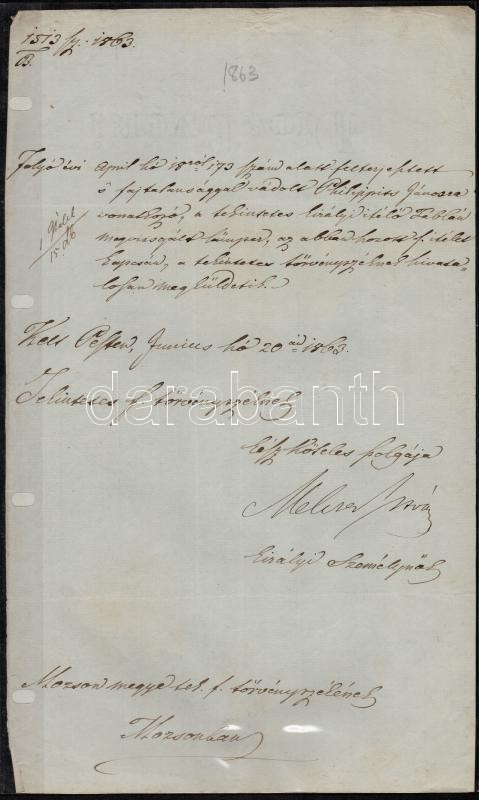 1513/B. sz. 1863.
1863
Folyó évi April hó 18ról 173 szám alatt felterjesztett
s fajtalansággal vádolt Philippits Jánosra
vonatkozó, a tekintetes királyi itélő Táblán
1 Ítélet
15 db
megvizsgált bűnper, az abban hozott f. itélet
kapcsán, a tekintetes törvényszéknek hivata-
losan megküldetik.
Kelt Pesten, Junius hó 20án 1863.
darabanth
Tekintetes f. törvényszéknek
kész köteles szolgája
Melczer István
királyi Személynök
Mozson megye tek. f. törvényszékének
Mozsonban